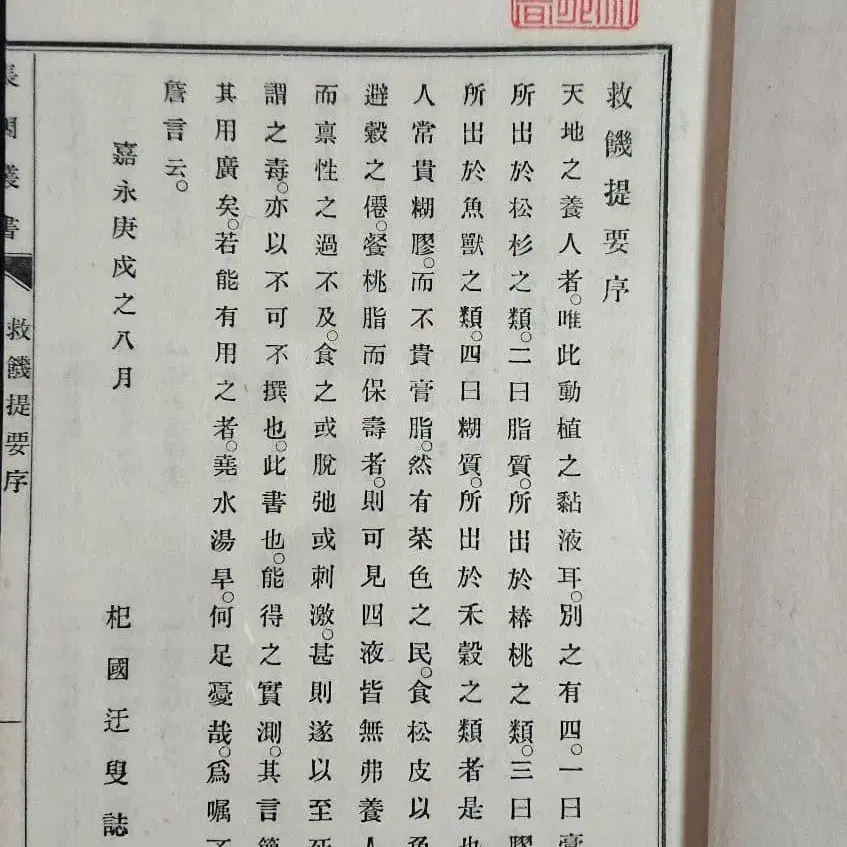 救饑提要序
天地之養人者。唯此動植之黏液耳。別之有四。一曰膏
所出於松杉之類。二曰脂質。所出於椿桃之類。三曰膠
所出於魚獸之類。四曰糊質。所出於禾穀之類者是也
人常貴糊膠。而不貴膏脂。然有菜色之民。食松皮以免
避穀之僊。餐桃脂而保壽者。則可見四液皆無弗養人
而稟性之過不及。食之或脫弛或刺激。甚則遂以至死
謂之毒。亦以不可不撰也。此書也。能得之實測。其言
其用廣矣。若能有用之者。堯水湯旱。何足憂哉。爲嘱
詹言云。
嘉永庚戌之八月
杞國迂叟誌
長周叢書
救饑提要序